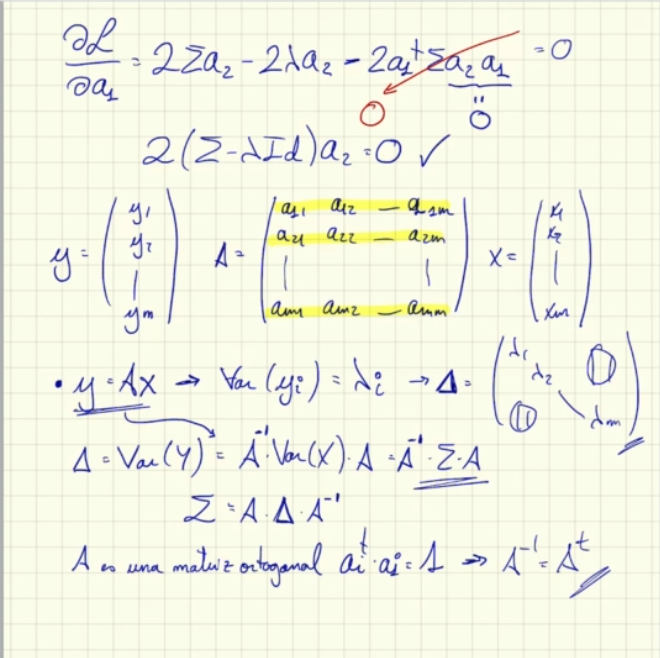 ∂ℒ/∂a₁ = 2Σa₂ - 2λa₂ - 2a₁ᵗΣa₂ a₁ = 0
0 " 0
2(Σ-λId)a₂ = 0 ✓
y = (y₁ y₂ | ym) A = (a₁₁ a₁₂ — a₁m a₂₁ a₂₂ — a₂m | | am1 am2 — amm) X = (x₁ x₂ | xm)
• y = AX → Var(yi) = λi → Δ = (λ₁ λ₂ \ λm 0 0)
Δ = Var(Y) = A⁻¹·Var(X)·A = A⁻¹·Σ·A
Σ = A·Δ·A⁻¹
A es una matriz ortogonal aiᵗ·ai = 1 → A⁻¹ = Aᵗ